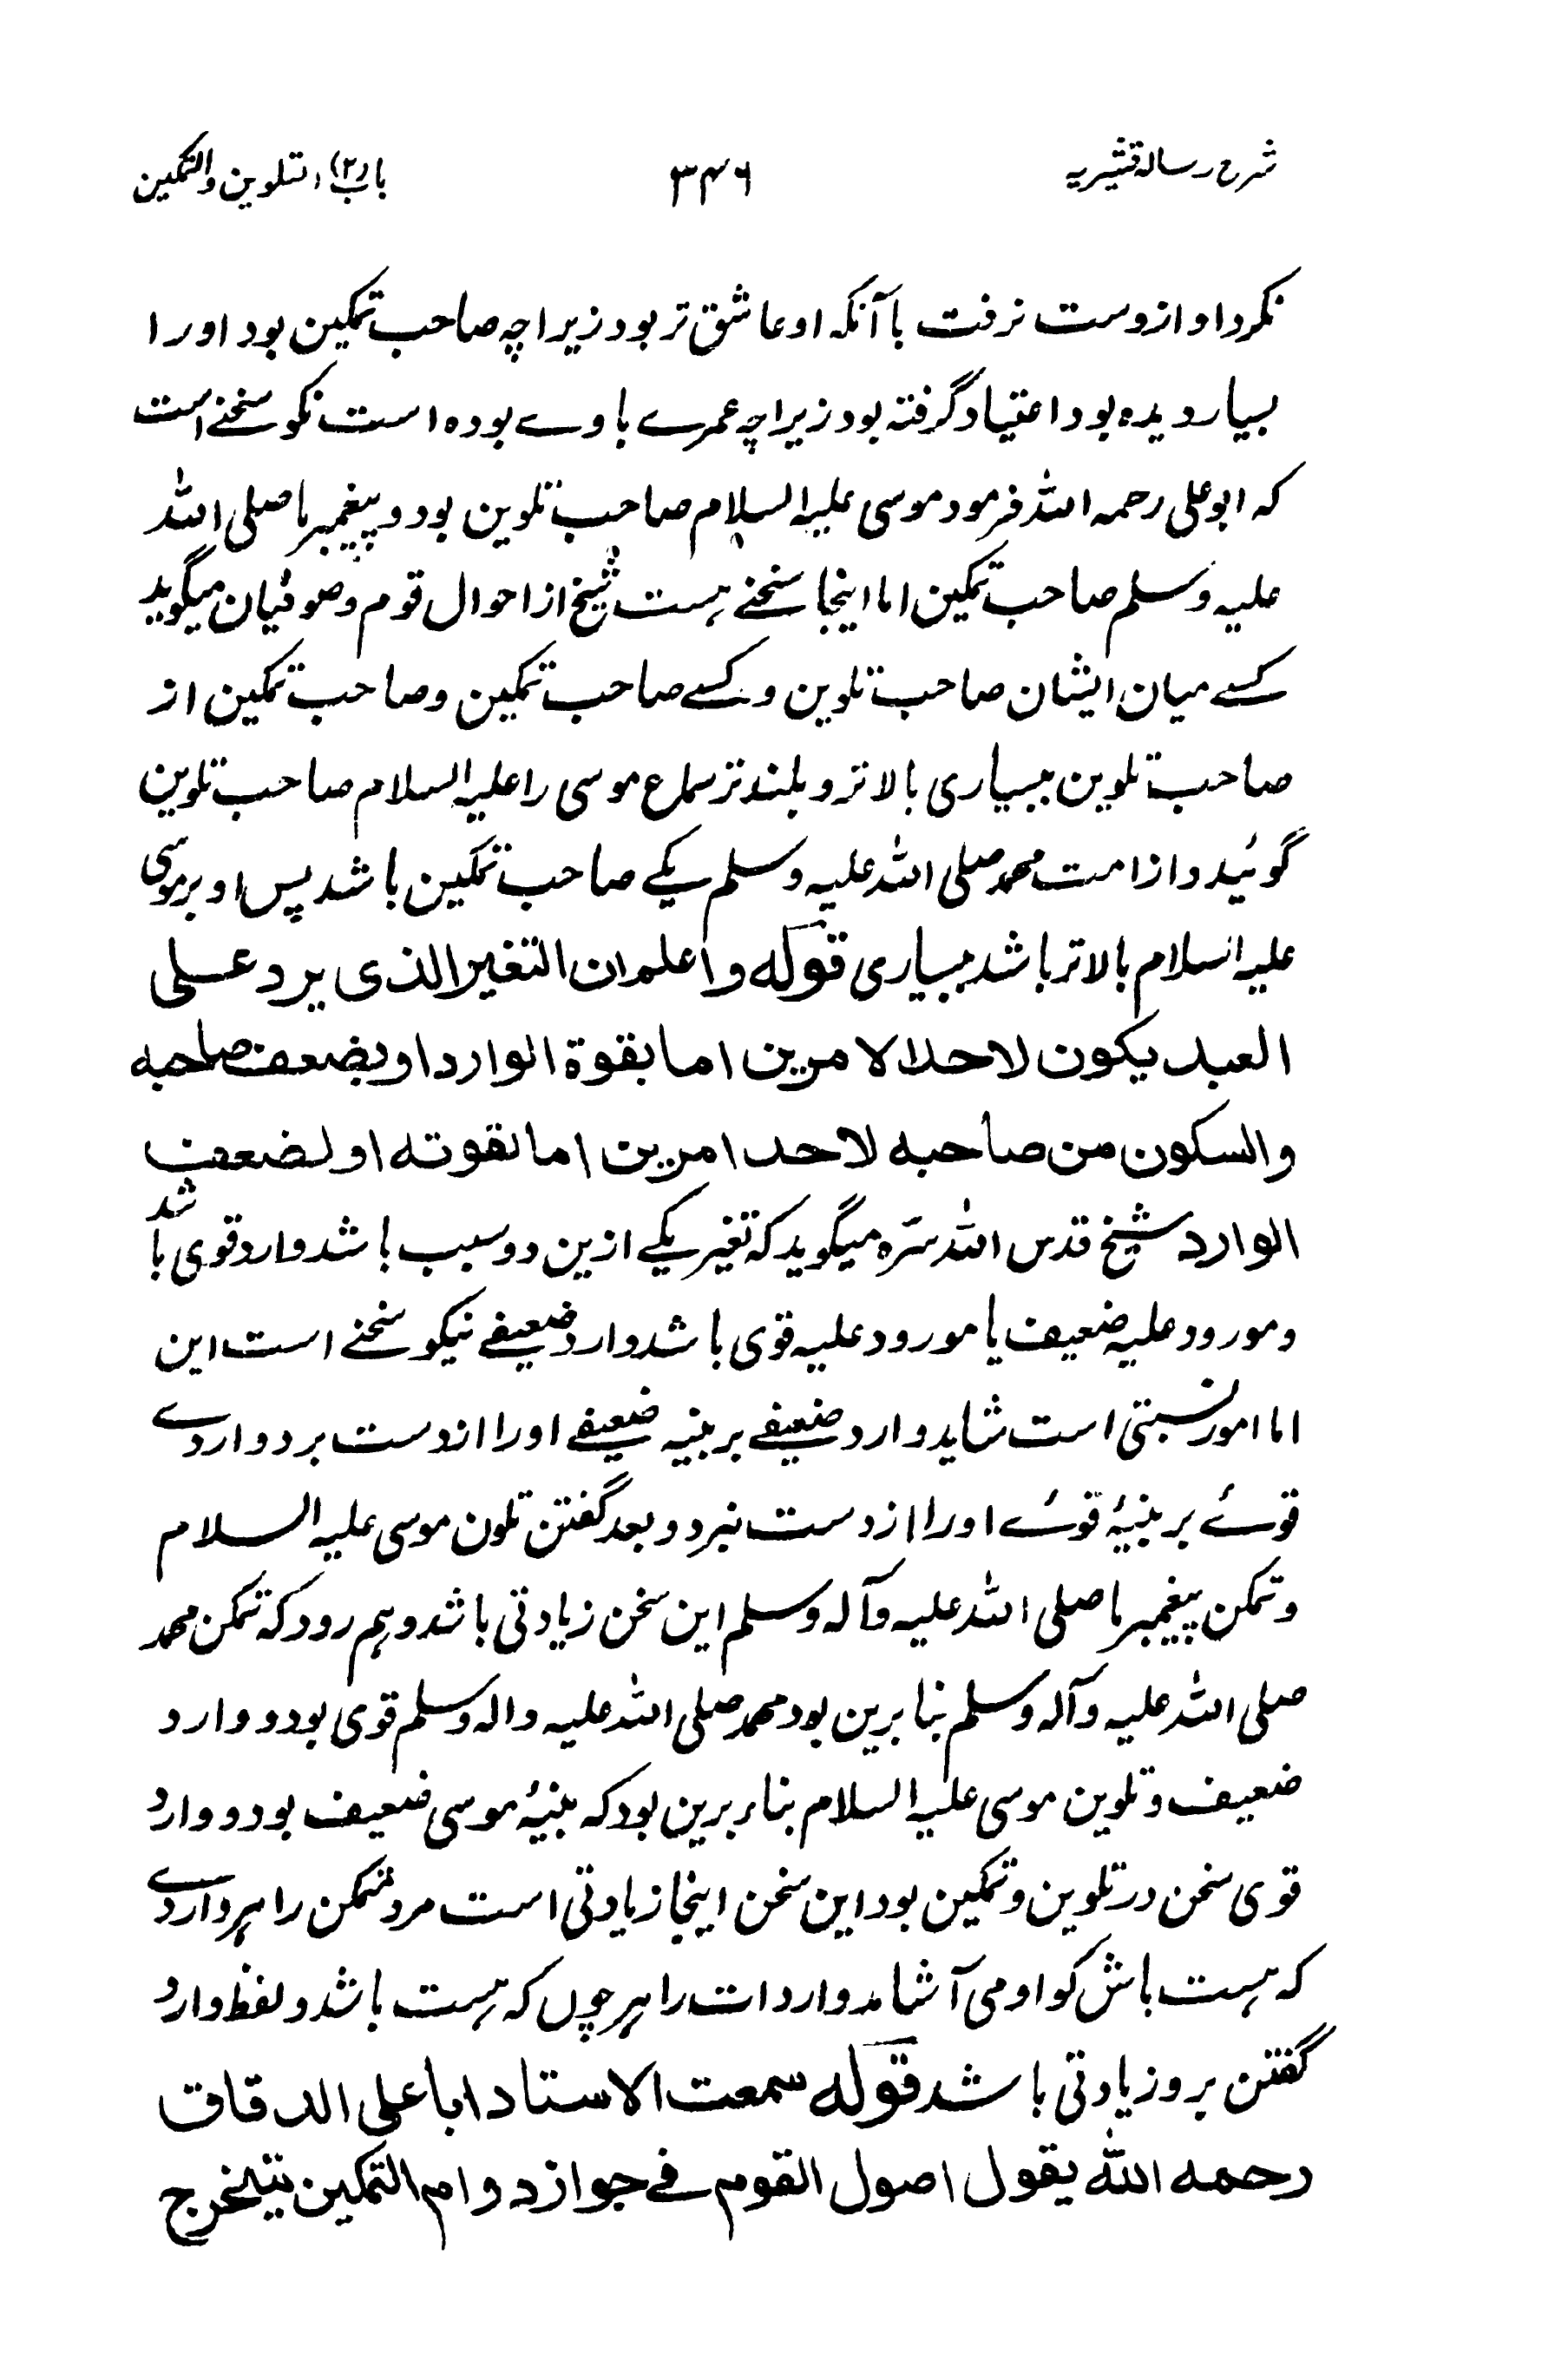 شرح رسالہ قشیریہ ۳۴۶ باب (۲) التلوین والتمکین
نکرد او از دست نرفت با آنکہ او عاشق تر بود زیراچہ صاحب تمکین بود او را
بسیار دیدہ بود اعتیاد گرفتہ بود زیراچہ عمرے با وے بودہ است نکو سخنے است
کہ ابو علی رحمہ اللہ فرمود موسی علیہ السلام صاحب تلوین بود و پیغمبر ما صلی اللہ
علیہ و سلم صاحب تمکین اما اینجا سخنے ہست شیخ از احوال قوم و صوفیان میگوید
کسے میان ایشان صاحب تلوین و کسے صاحب تمکین و صاحب تمکین از
صاحب تلوین ببسیاری بالاتر و بلندتر سماع موسی را علیہ السلام صاحب تلوین
گوئید و از امت محمد صلی اللہ علیہ و سلم یکے صاحب تمکین باشد پس او بر موسی
علیہ السلام بالاتر باشد ببسیاری قولہ واعلم ان التغیر الذی یرد علی
العبد یکون لاحد الامرین اما بقوة الوارد او بضعف صاحبہ
والسکون من صاحبہ لاحد امرین اما لقوتہ او لضعف
الوارد شیخ قدس اللہ سرہ میگوید کہ تغیر یکے ازین دو سبب باشد وارد قوی باشد
و مورود علیہ ضعیف یا مورود علیہ قوی باشد وارد ضعیفے نیکو سخنے است این
اما امور نسبتی است شاید وارد ضعیفے بر بنیہ ضعیفے او را از دست برد و واردے
قوئے بر بنیۂ قوئے او را از دست نبرد و بعد گفتن تلون موسی علیہ السلام
و تمکن پیغمبر ما صلی اللہ علیہ وآلہ وسلم این سخن زیادتی باشد وہم رود کہ تمکن محمد
صلی اللہ علیہ وآلہ وسلم بنا برین بود محمد صلی اللہ علیہ والہ وسلم قوی بود و وارد
ضعیف و تلوین موسی علیہ السلام بناء برین بود کہ بنیۂ موسی ضعیف بود و وارد
قوی سخن در تلوین و تمکین بود این سخن اینجا زیادتی است مرد متمکن را ہر واردے
کہ ہست باش کو او می آشامد واردات را ہر چوں کہ ہست باشد و لفظ وارد
گفتن برو زیادتی باشد قولہ سمعت الاستاد ابا علی الدقاق
رحمہ اللہ یقول اصول القوم فے جواز دوام التمکین یتخرج